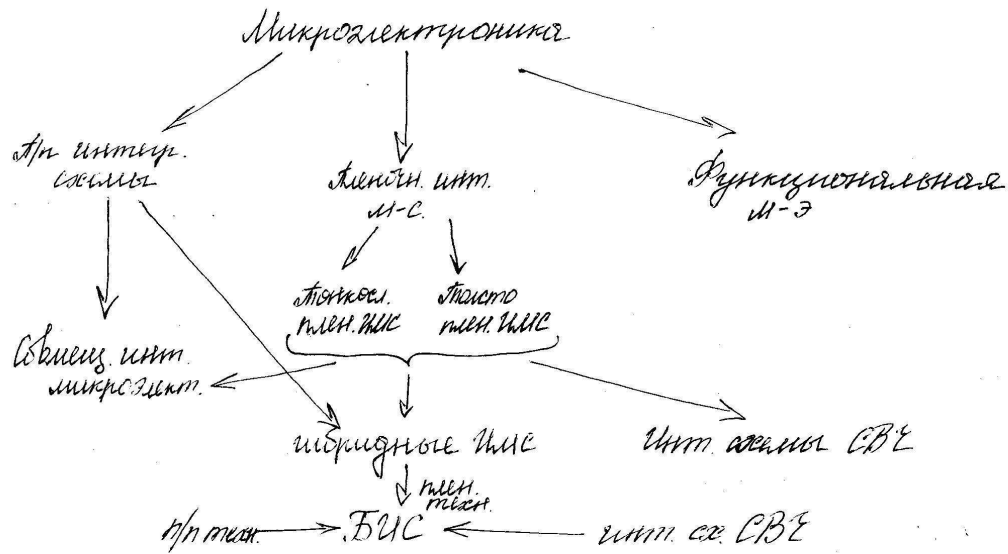 Микроэлектроника
П/п интегр.
схемы
Пленочн. инт.
м-с.
Функциональная
м-э
Тонкосл.
плен. ИМС
Толсто
плен. ИМС
Совмещ. инт.
микроэлект.
гибридные ИМС
Инт. схемы СВЧ
плен.
техн.
п/п техн.
БИС
инт. сх. СВЧ